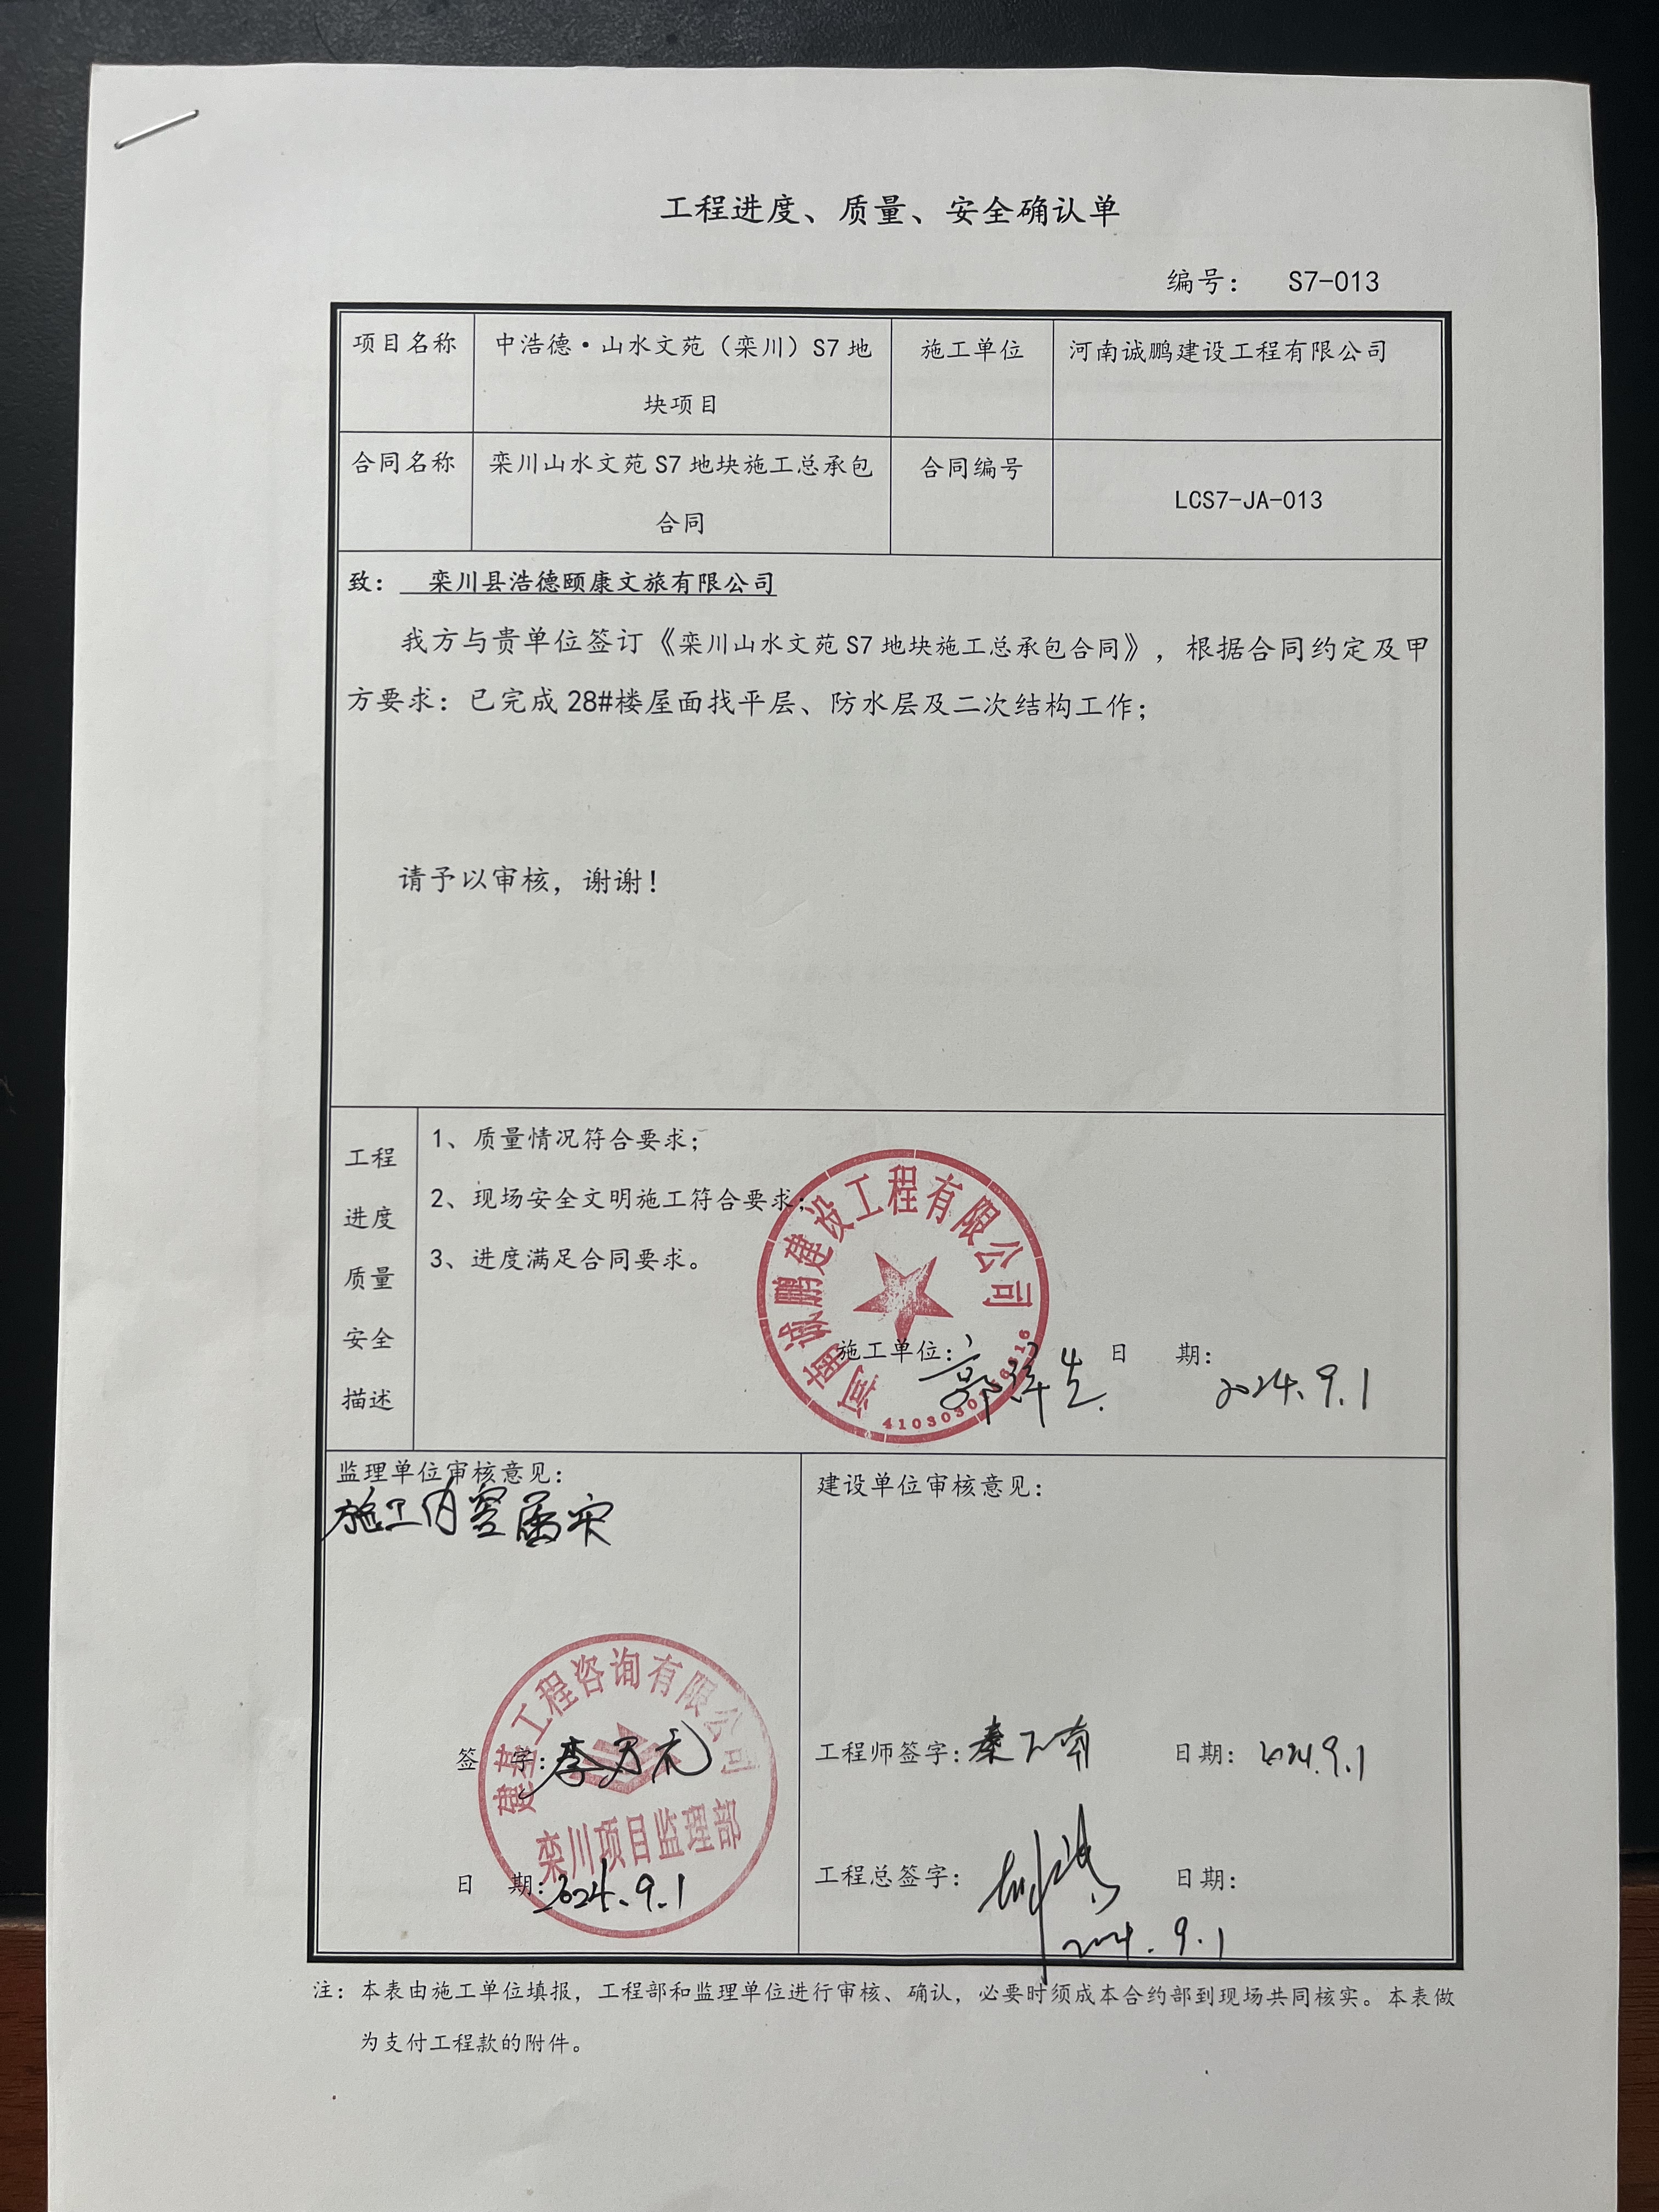 工程进度、质量、安全确认单
编号： S7-013
项目名称
中浩德·山水文苑（栾川）S7地
块项目
施工单位
河南诚鹏建设工程有限公司
合同名称
栾川山水文苑S7地块施工总承包
合同
合同编号
LCS7-JA-013
致： 栾川县浩德颐康文旅有限公司
我方与贵单位签订《栾川山水文苑S7地块施工总承包合同》，根据合同约定及甲
方要求：已完成28#楼屋面找平层、防水层及二次结构工作；
请予以审核，谢谢！
工程
进度
质量
安全
描述
1、质量情况符合要求；
2、现场安全文明施工符合要求；
3、进度满足合同要求。
河南诚鹏建设工程有限公司
施工单位：
日 期：
2024.9.1
监理单位审核意见：
施工内容属实
建基工程咨询有限公司
栾川项目监理部
签 字：李万元
日 期：2024.9.1
建设单位审核意见：
工程师签字：
日期：2024.9.1
工程总签字：
日期：
2024.9.1
注：本表由施工单位填报，工程部和监理单位进行审核、确认，必要时须成本合约部到现场共同核实。本表做
为支付工程款的附件。